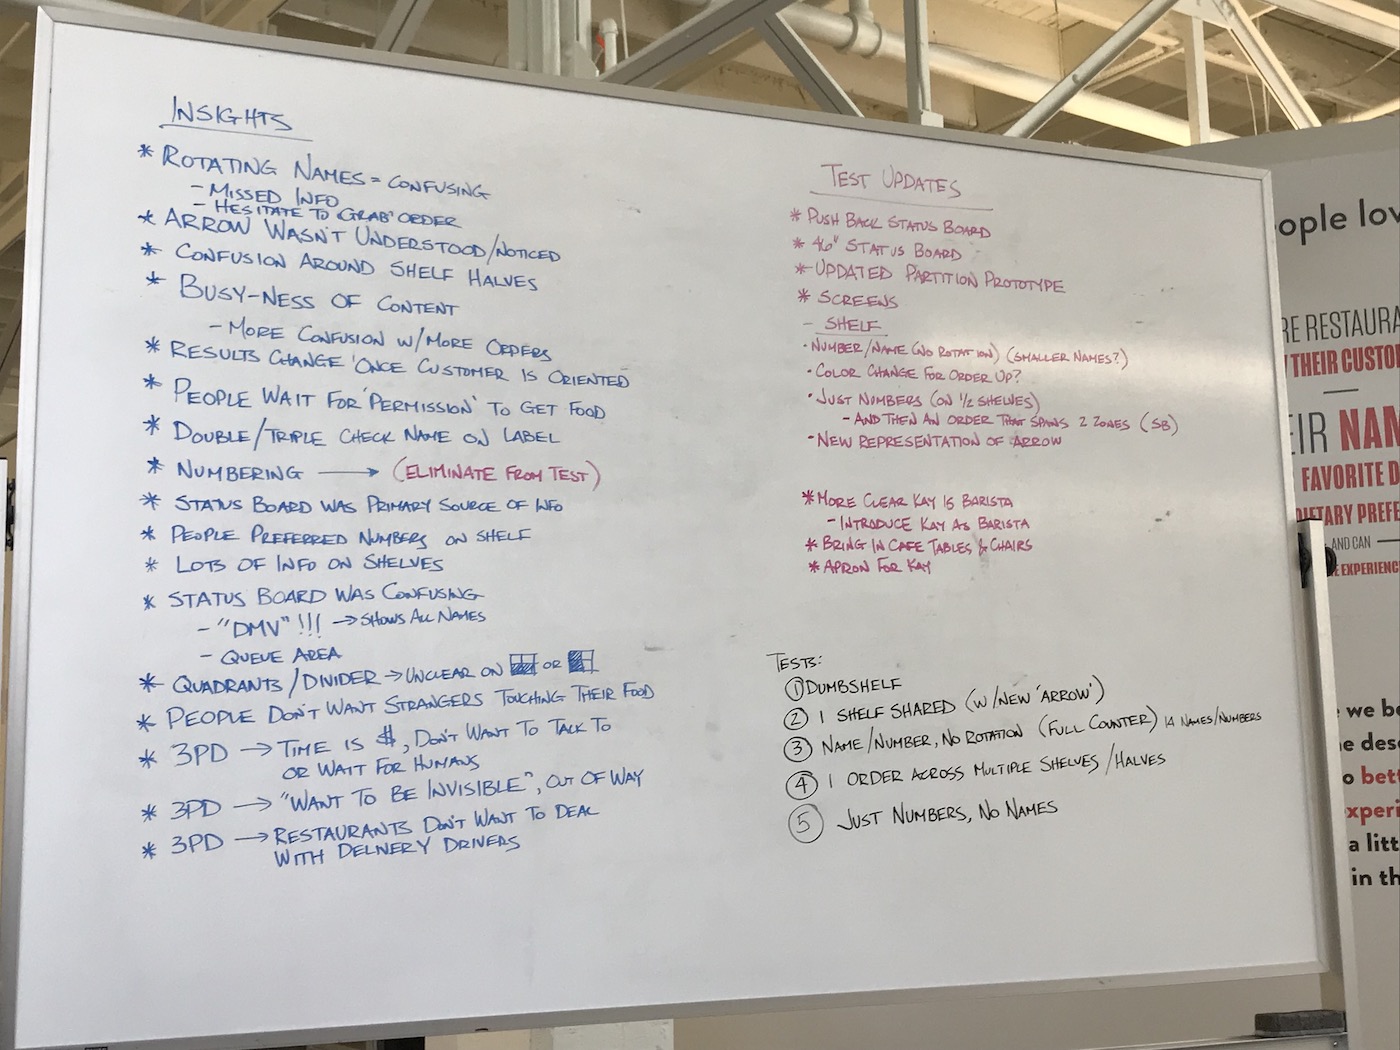 INSIGHTS
* ROTATING NAMES = CONFUSING
- MISSED INFO
- HESITATE TO 'GRAB' ORDER
* ARROW WASN'T UNDERSTOOD/NOTICED
* CONFUSION AROUND SHELF HALVES
* BUSY-NESS OF CONTENT
- MORE CONFUSION W/MORE ORDERS
* RESULTS CHANGE 'ONCE CUSTOMER IS ORIENTED
* PEOPLE WAIT FOR 'PERMISSION' TO GET FOOD
* DOUBLE/TRIPLE CHECK NAME ON LABEL
* NUMBERING → (ELIMINATE FROM TEST)
* STATUS BOARD WAS PRIMARY SOURCE OF INFO
* PEOPLE PREFERRED NUMBERS ON SHELF
* LOTS OF INFO ON SHELVES
* STATUS BOARD WAS CONFUSING
- "DMV" !!! → SHOWS ALL NAMES
- QUEUE AREA
* QUADRANTS/DIVIDER → UNCLEAR ON OR
* PEOPLE DON'T WANT STRANGERS TOUCHING THEIR FOOD
* 3PD → TIME IS $, DON'T WANT TO TALK TO
OR WAIT FOR HUMANS
* 3PD → "WANT TO BE INVISIBLE", OUT OF WAY
* 3PD → RESTAURANTS DON'T WANT TO DEAL
WITH DELIVERY DRIVERS
TEST UPDATES
* PUSH BACK STATUS BOARD
* 46" STATUS BOARD
* UPDATED PARTITION PROTOTYPE
* SCREENS
- SHELF
· NUMBER/NAME (NO ROTATION) (SMALLER NAMES?)
· COLOR CHANGE FOR ORDER UP?
· JUST NUMBERS (ON 1/2 SHELVES)
- AND THEN AN ORDER THAT SPANS 2 ZONES (SB)
· NEW REPRESENTATION OF ARROW
* MORE CLEAR KAY IS BARISTA
- INTRODUCE KAY AS BARISTA
* BRING IN CAFE TABLES & CHAIRS
* APRON FOR KAY
TESTS:
① DUMBSHELF
② 1 SHELF SHARED (W/NEW 'ARROW')
③ NAME/NUMBER, NO ROTATION (FULL COUNTER) 14 NAMES/NUMBERS
④ 1 ORDER ACROSS MULTIPLE SHELVES/HALVES
⑤ JUST NUMBERS, NO NAMES
ople lov
RE RESTAURA
THEIR CUSTOM
EIR NAM
FAVORITE D
IETARY PREFE
AND CAN
E EXPERIENC
we be
e desc
o bett
xperi
a litt
in th